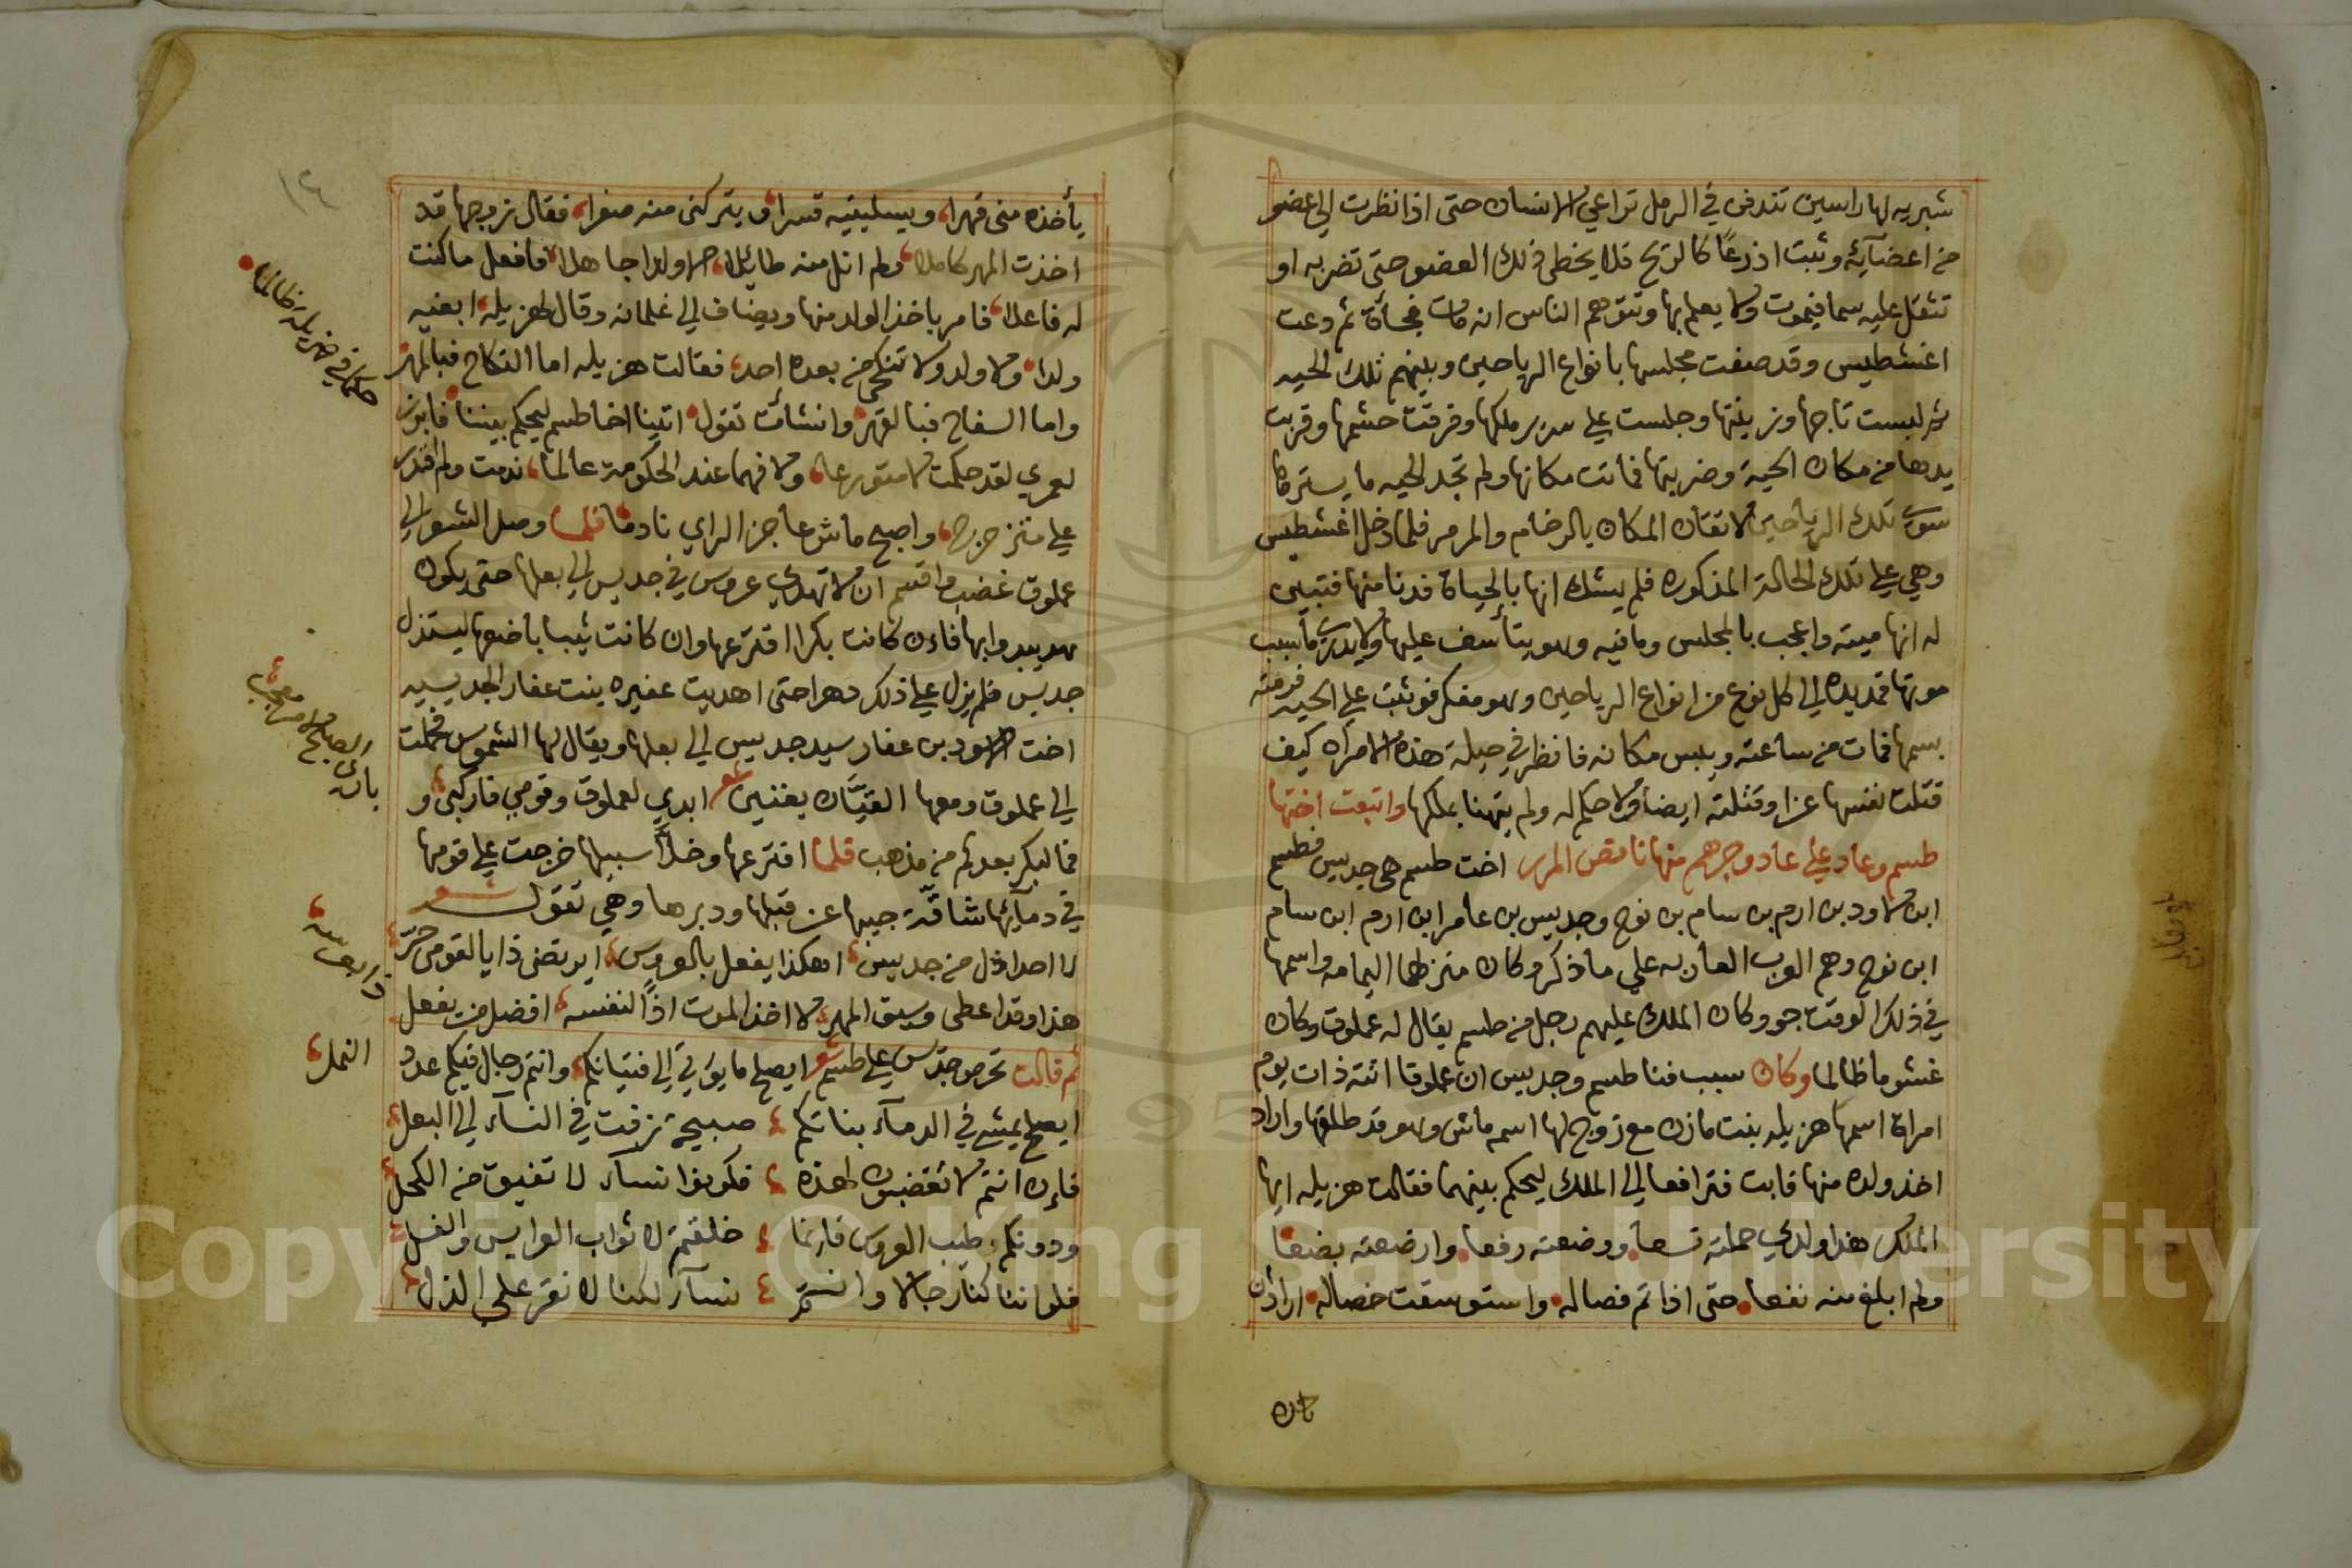 شبريه لها راسين تندفن في الرمل تراعي الانسان حتى اذا نظرت الي عضو
من اعضآيه وثبت اذرعًا كالريح فلا يخطى ذلك العضو حتى تضربه او
تثقل عليه سما فيموت ولا يعلم بها وتتوهم الناس انه مات فجأة ثم دعت
اغشطيس وقد صفت مجلسها بانواع الرياحين وبينهم تلك الحيه
ثم لبست تاجها وزينتها وجلست علي سرير ملكها وفرقت حشمها وقربت
يدها من مكان الحية وضربتها فماتت مكانها ولم تجد الحيه ما يسترها
سوى تلك الرياحين لاتقان المكان بالرخام والمرمر فلما دخل اغشطيس
وهي علي تلك الحالة المذكوره فلم يشك انها بالحياة فدنا منها فتبين
له انها ميته واعجب بالمجلس وما فيه وهو يتأسف عليها ولا يدرى ما سبب
موتها فمد يده الي كل نوع من انواع الرياحين وهو مفكر فوثبت علي الحيه فرمته
بسمها فمات من ساعته ويبس مكانه فانظر في حيلة هذه الامراه كيف
قتلت نفسها عزا وقتلته ايضا ولا حكم له ولم يتهنا بملكها واتبعت اختها
طسم وعاد علي عاد وجرهم منها ناقص المرر اخت طسم هي جديس فطسم
ابن لاود بن ارم بن سام بن نوح وجديس بن عامر ابن ارم ابن سام
ابن نوح وهم العرب العاربه علي ما ذكر وكان منزلهما اليمامه واسمها
في ذلك الوقت جو وكان الملك عليهم رجل من طسم يقال له عملوق وكان
غشوما ظالما وكان سبب فنا طسم وجديس ان عملوقا اتته ذات يوم
امراة اسمها هزيله بنت مازن مع زوج لها اسمه ماش وهو قد طلقها واراد
اخذ ولده منها فابت فترافعا الي الملك ليحكم بينهما فقالت هزيله ايها
الملك هذا ولدي حملته تسعا ووضعته رفعا وارضعته بضعا
ولم ابلغ منه نفعا حتى اذا تم فصاله واستوسقت خصاله اراد ان
يأخذه منى قهرا ويسلبنيه قسرا ويتركنى منه صفرا فقال زوجها قد
اخذت المهر كاملا ولم انل منه طائلا الا ولدا جاهلا فافعل ما كنت
له فاعلا فامر باخذ الولد منها ويضاف الي غلمانه وقال لهزيله ابغيه
ولدا ولا ولد ولا تنكحي من بعده احد فقالت هزيله اما النكاح فبالمهر
واما السفاح فبالقهر وانشأت تقول اتينا اخا طسم ليحكم بيننا فابرز
حكما في هزيله ظالما
لعمري لقد حكمت لا متورعا ولا فهما عند الحكومة عالما ندمت ولم اقدر
علي متزحزح واصبح ماش عاجز الراي نادما فلما وصل الشعر الي
عملوق غضب واقسم ان لا تهدي عروس في جديس الي بعلها حتى يكون
هو يبدو ابها فاءن كانت بكرا افترعها وان كانت ثيبا باضعها ليستذل
جديس فلم يزل علي ذلك دهرا حتى اهديت عفيره بنت عفار الجديسيه
اخت الاسود بن عفار سيد جديس الي بعلها ويقال لها الشموس فحملت
الي عملوق ومعها القيّان يغنين شعر ابدي لعملوق وقومي فاركبى و
بادرى الصبح لامر معجب
فما لبكر بعدكم من مذهب فلما افترعها وخلآ سبيلها خرجت علي قومها
في دمآيها شاقّة جيبها عن قبلها ودبرها وهي تقول شعر
لا احد اذل من جديس اهكذا يفعل بالعروس ايرتضى ذا يا لقومى حرّ
هذا وقد اعطى وسيق المهر لا اخذ الموت اذًا لنفسه افضل من يفعل
ذا بعرسه
ثم قالت تحرض جدس علي طسم شعر ايصلح ما يوتي الي فتياتكم وانتم رجال فيكم عدد
النمل
ايصلح يمشى في الدمآء بناتكم صبيحة زفت في النسآء الي البعل
فاءن انتم لا تغضبون لهذه فكونوا نسآء لا تفيق من الكحل
ودونكم طيب العروس فانما خلقتم لاثواب العرايس والغسل
فلو اننا كنا رجالا وانتم نسآء لكنا لا نقر علي الذل